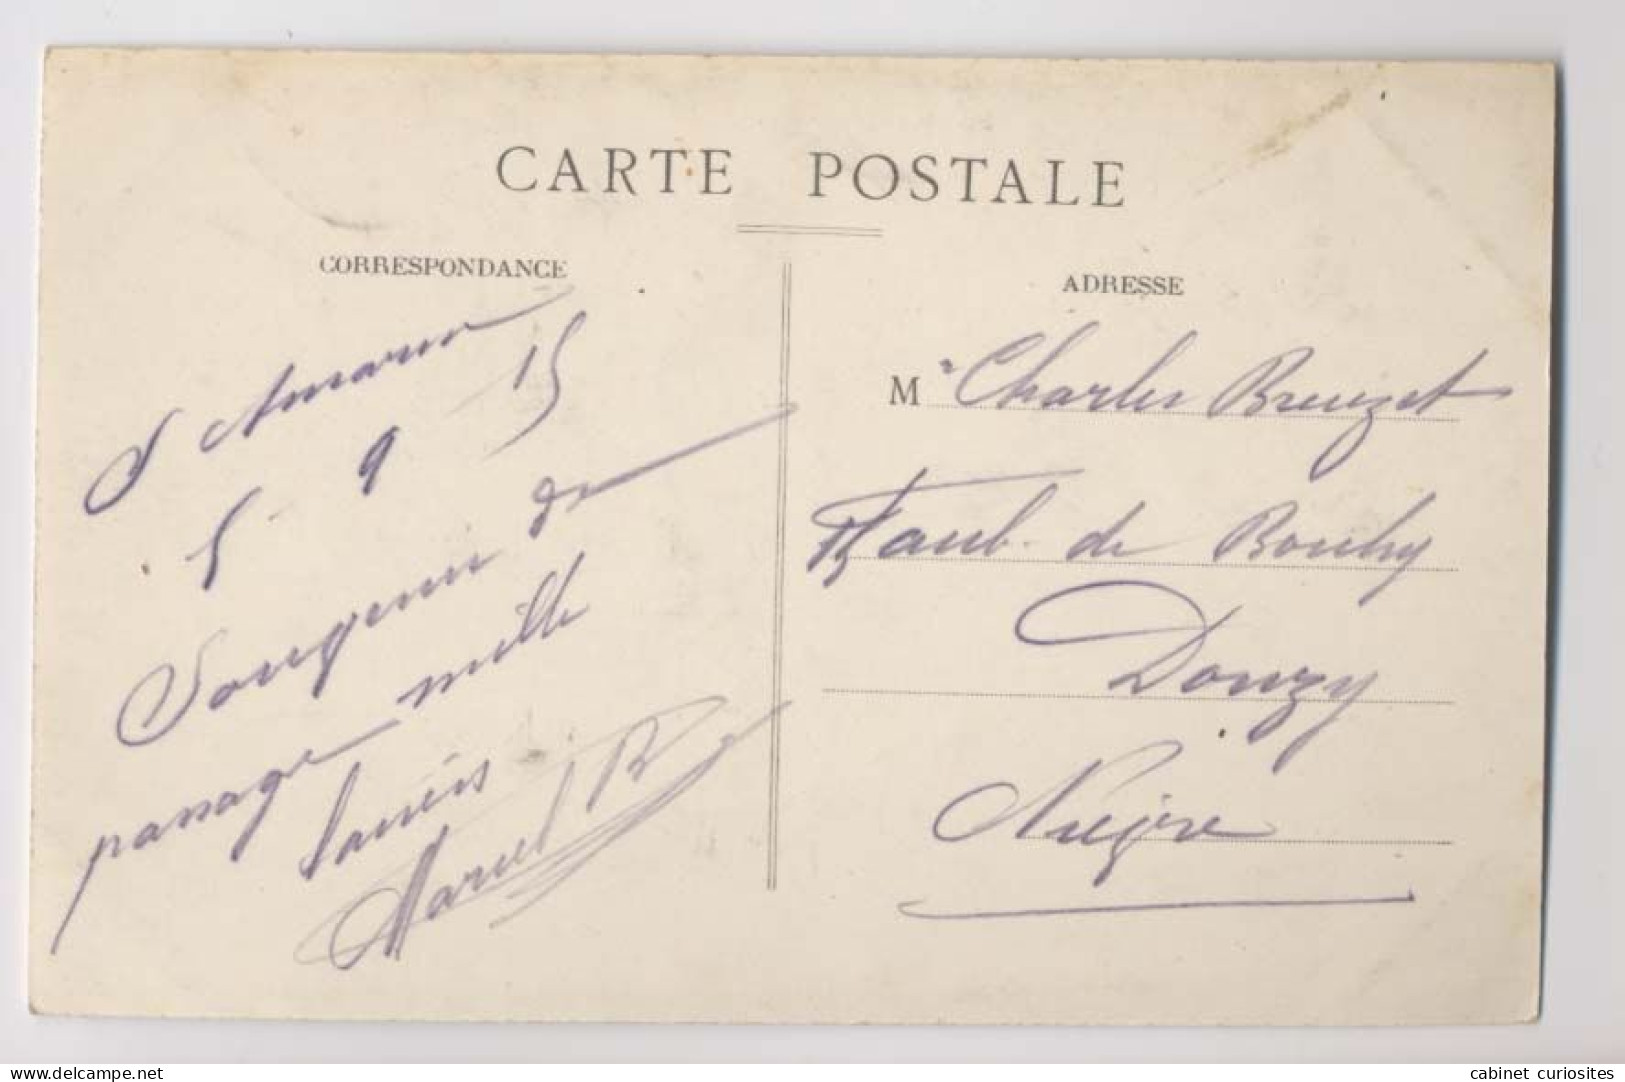 CARTE POSTALE
CORRESPONDANCE
S Amarin
5 9 15
Souvenir de
passage mille
baisers
Marcel B
ADRESSE
M Charles Breuzet
Faub. de Bouhy
Donzy
Nièvre
cabinet curiosites
delcampe.net